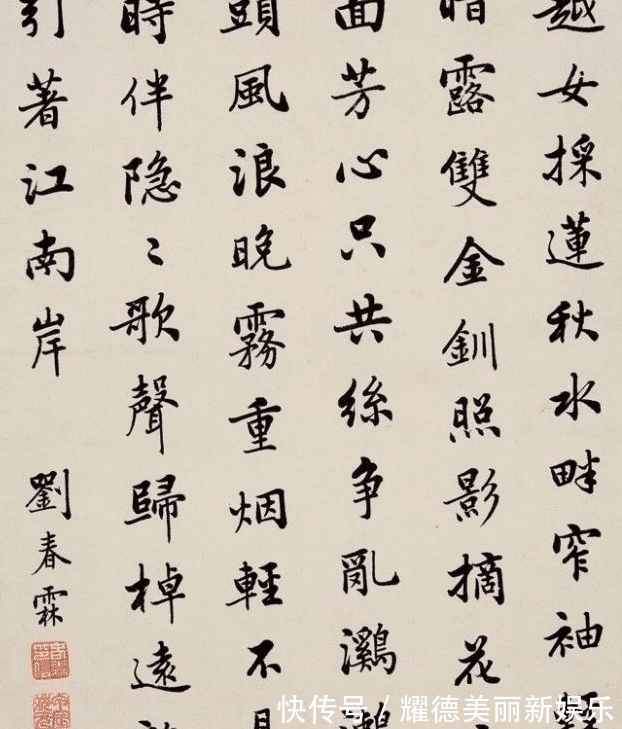 越女採蓮秋水畔窄袖輕
暗露雙金釧照影摘花
面芳心只共絲争亂鸂
頭風浪晚霧重烟輕不見
時伴隐〻歌聲歸棹遠
引著江南岸
劉春霖
快传号 / 耀德美丽新娱乐